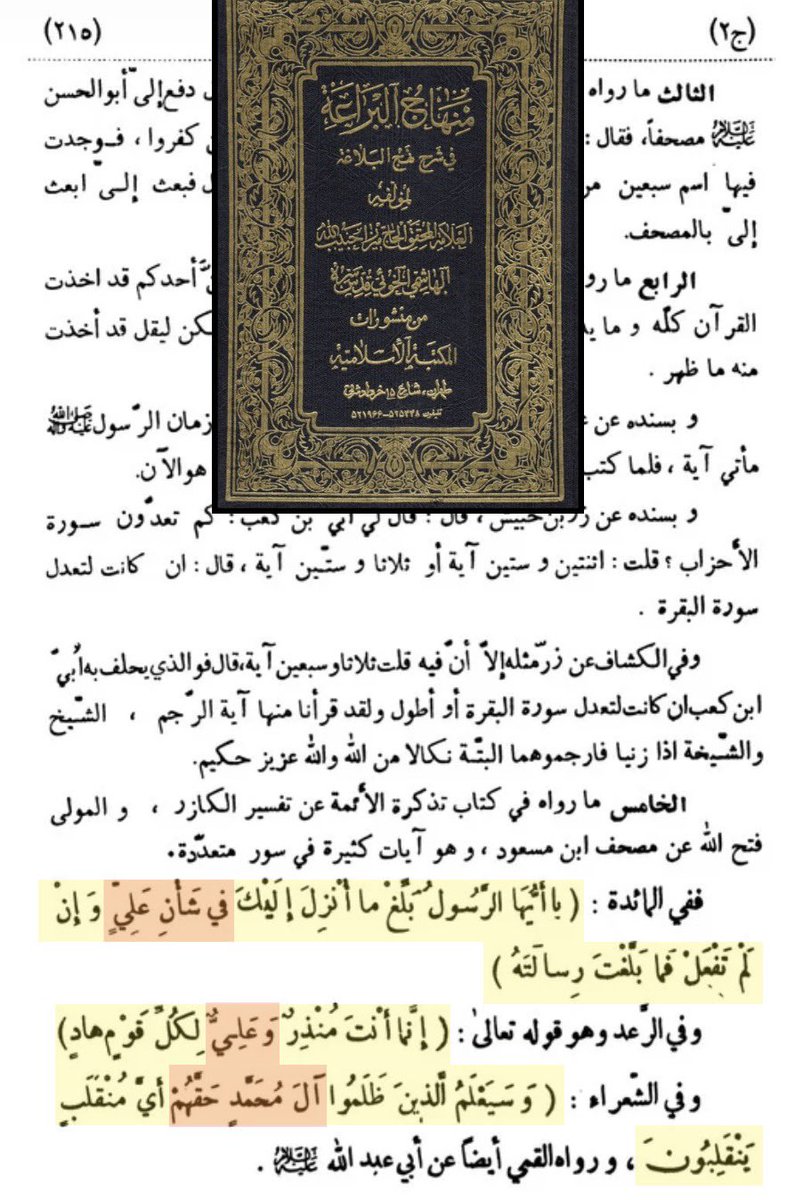 (ج٢)
(٢١٥)
منهاج البراعة
في شرح نهج البلاغة
لمؤلفه
العلامة المحقق الحاج ميرزا حبيب الله
الهاشمي الخوئي قدس سره
من منشورات
المكتبة الاسلامية
طهران، شارع ١٥ خرداد شرقي
تليفون ٥٢٥٣٤٨-٥٢١٩٦٦
الثالث ما رواه
دفع إلىّ أبوالحسن
عليه السلام مصحفاً، فقال :
كفروا ، فـوجدت
فيها اسم سبعين
فبعث إلــىّ ابعث
إلىّ بالمصحف.
الرابع ما
أحدكم قد اخذت
القرآن كلّه و ما
ليقل قد أخذت
منه ما ظهر .
و بسنده عن
زمان الرّسول صلى الله عليه وآله
مأتي آية ، فلما كتب
هوالآن.
و بسنده عن زرّبن حبيش ، قال : قال لي ابي بن كعب : كم تعدّون سـورة
الأحزاب ؟ قلت : اثنتين و ستين آية أو ثلاثا و ستّـين آية ، قال : ان كانت لتعدل
سورة البقرة .
وفي الكشاف عن زرّ مثله إلاّ أنّ فيه قلت ثلاثا وسبعين آية، قال فوالذي يحلف به اُبيّ
ابن كعب ان كانت لتعدل سورة البقرة أو أطول ولقد قرأنا منها آية الرّجم ، الشّيخ
والشّيخة اذا زنيا فارجموهما البتّـة نكالا من الله والله عزيز حكيم.
الخامس ما رواه في كتاب تذكرة الأئمة عن تفسير الكازر ، و المولى
فتح الله عن مصحف ابن مسعود ، و هو آيات كثيرة في سور متعدّدة.
ففي المائدة : ( يا أَيُّهَا الرَّسُولُ بَلِّغْ ما أُنْزِلَ إِلَيْكَ في شَأْنِ عَلِيٍّ وَ إِنْ
لَمْ تَفْعَلْ فَما بَلَّغْتَ رِسالَتَهُ )
وفي الرّعد وهو قوله تعالىٰ : ( إِنَّما أَنْتَ مُنْذِرٌ وَعَلِـيٌّ لِكُلِّ قَوْمٍ هادٍ)
وفي الشّعراء : ( وَ سَيَعْلَمُ الَّذينَ ظَلَمُوا آلَ مُحَمَّدٍ حَقَّهُمْ أَيَّ مُنْقَلَبٍ
يَنْقَلِبُونَ ، و رواه القمي أيضاً عن أبي عبد الله عليه السلام .